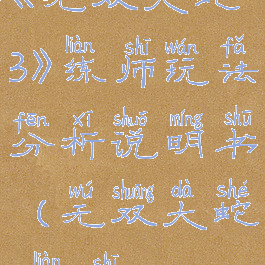 《无双大蛇
liàn shī wán fǎ
3》练师玩法
fēn xī shuō míng shū
分析说明书
wú shuāng dà shé
(无双大蛇
liàn shī